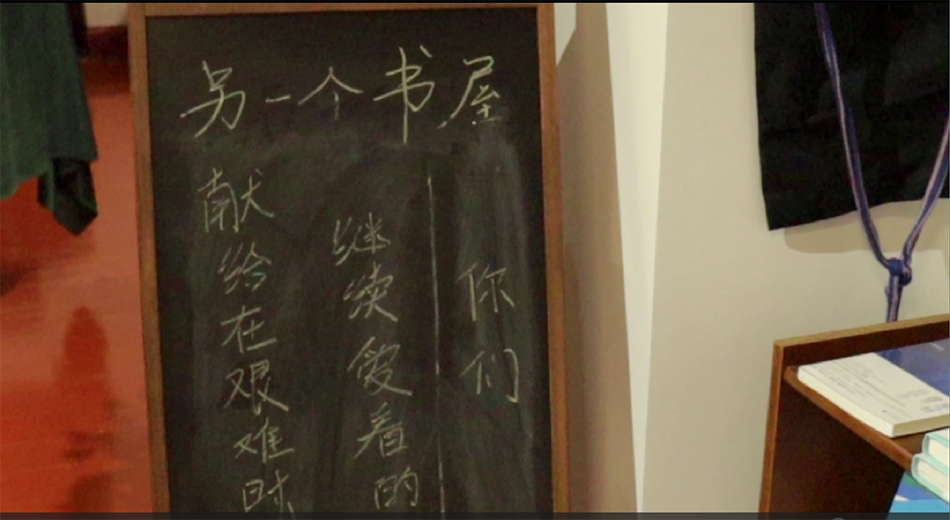 另一个书屋
献给在艰难时
继续爱着的
你们